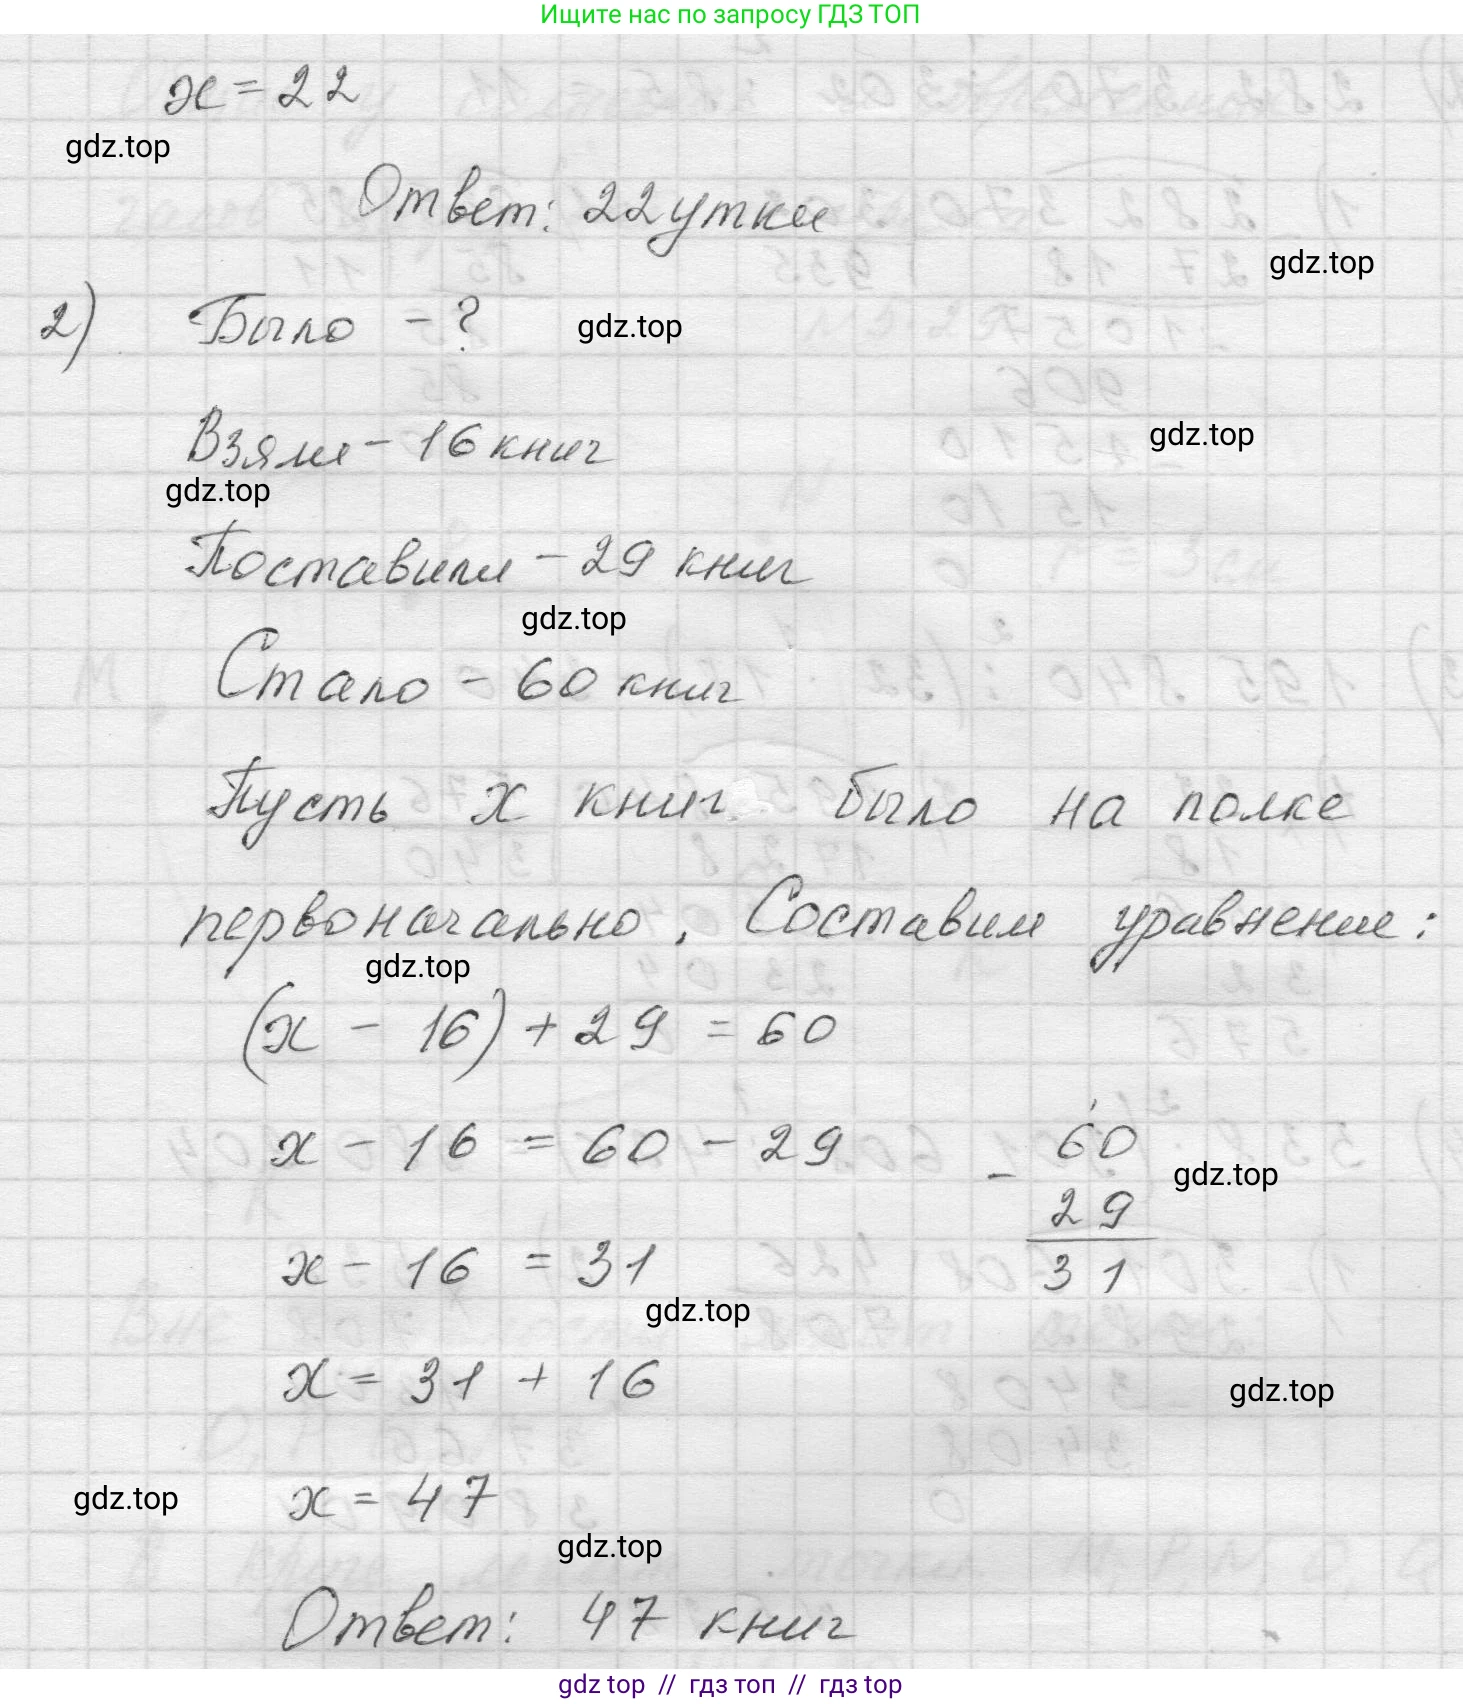 Ищите нас по запросу ГДЗ ТОП
x = 22
gdz.top
Ответ: 22 утки
gdz.top
2) Было - ?
gdz.top
Взяли - 16 книг
gdz.top
gdz.top
Поставили - 29 книг
gdz.top
Стало - 60 книг
Пусть x книг было на полке
первоначально. Составим уравнение:
gdz.top
(x - 16) + 29 = 60
x - 16 = 60 - 29
- 60
29
31
gdz.top
x - 16 = 31
gdz.top
x = 31 + 16
gdz.top
x = 47
gdz.top
gdz.top
Ответ: 47 книг
gdz top // гдз топ // гдз top